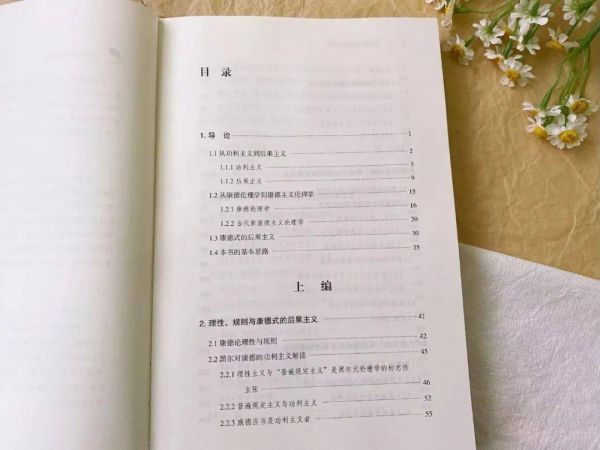 目 录
1. 导 论 1
1.1 从功利主义到后果主义 2
1.1.1 功利主义 3
1.1.2 后果主义 9
1.2 从康德伦理学到康德主义伦理学 15
1.2.1 康德伦理学 16
1.2.2 当代新康德主义伦理学 20
1.3 康德式的后果主义 30
1.4 本书的基本思路 35
上 编
2. 理性、规则与康德式的后果主义 41
2.1 康德论理性与规则 42
2.2 黑尔对康德的功利主义解读 45
2.2.1 理性主义与“普遍规定主义”是黑尔元伦理学的标志性
主张 46
2.2.2 普遍规定主义与功利主义 52
2.2.3 康德应当是功利主义者 55